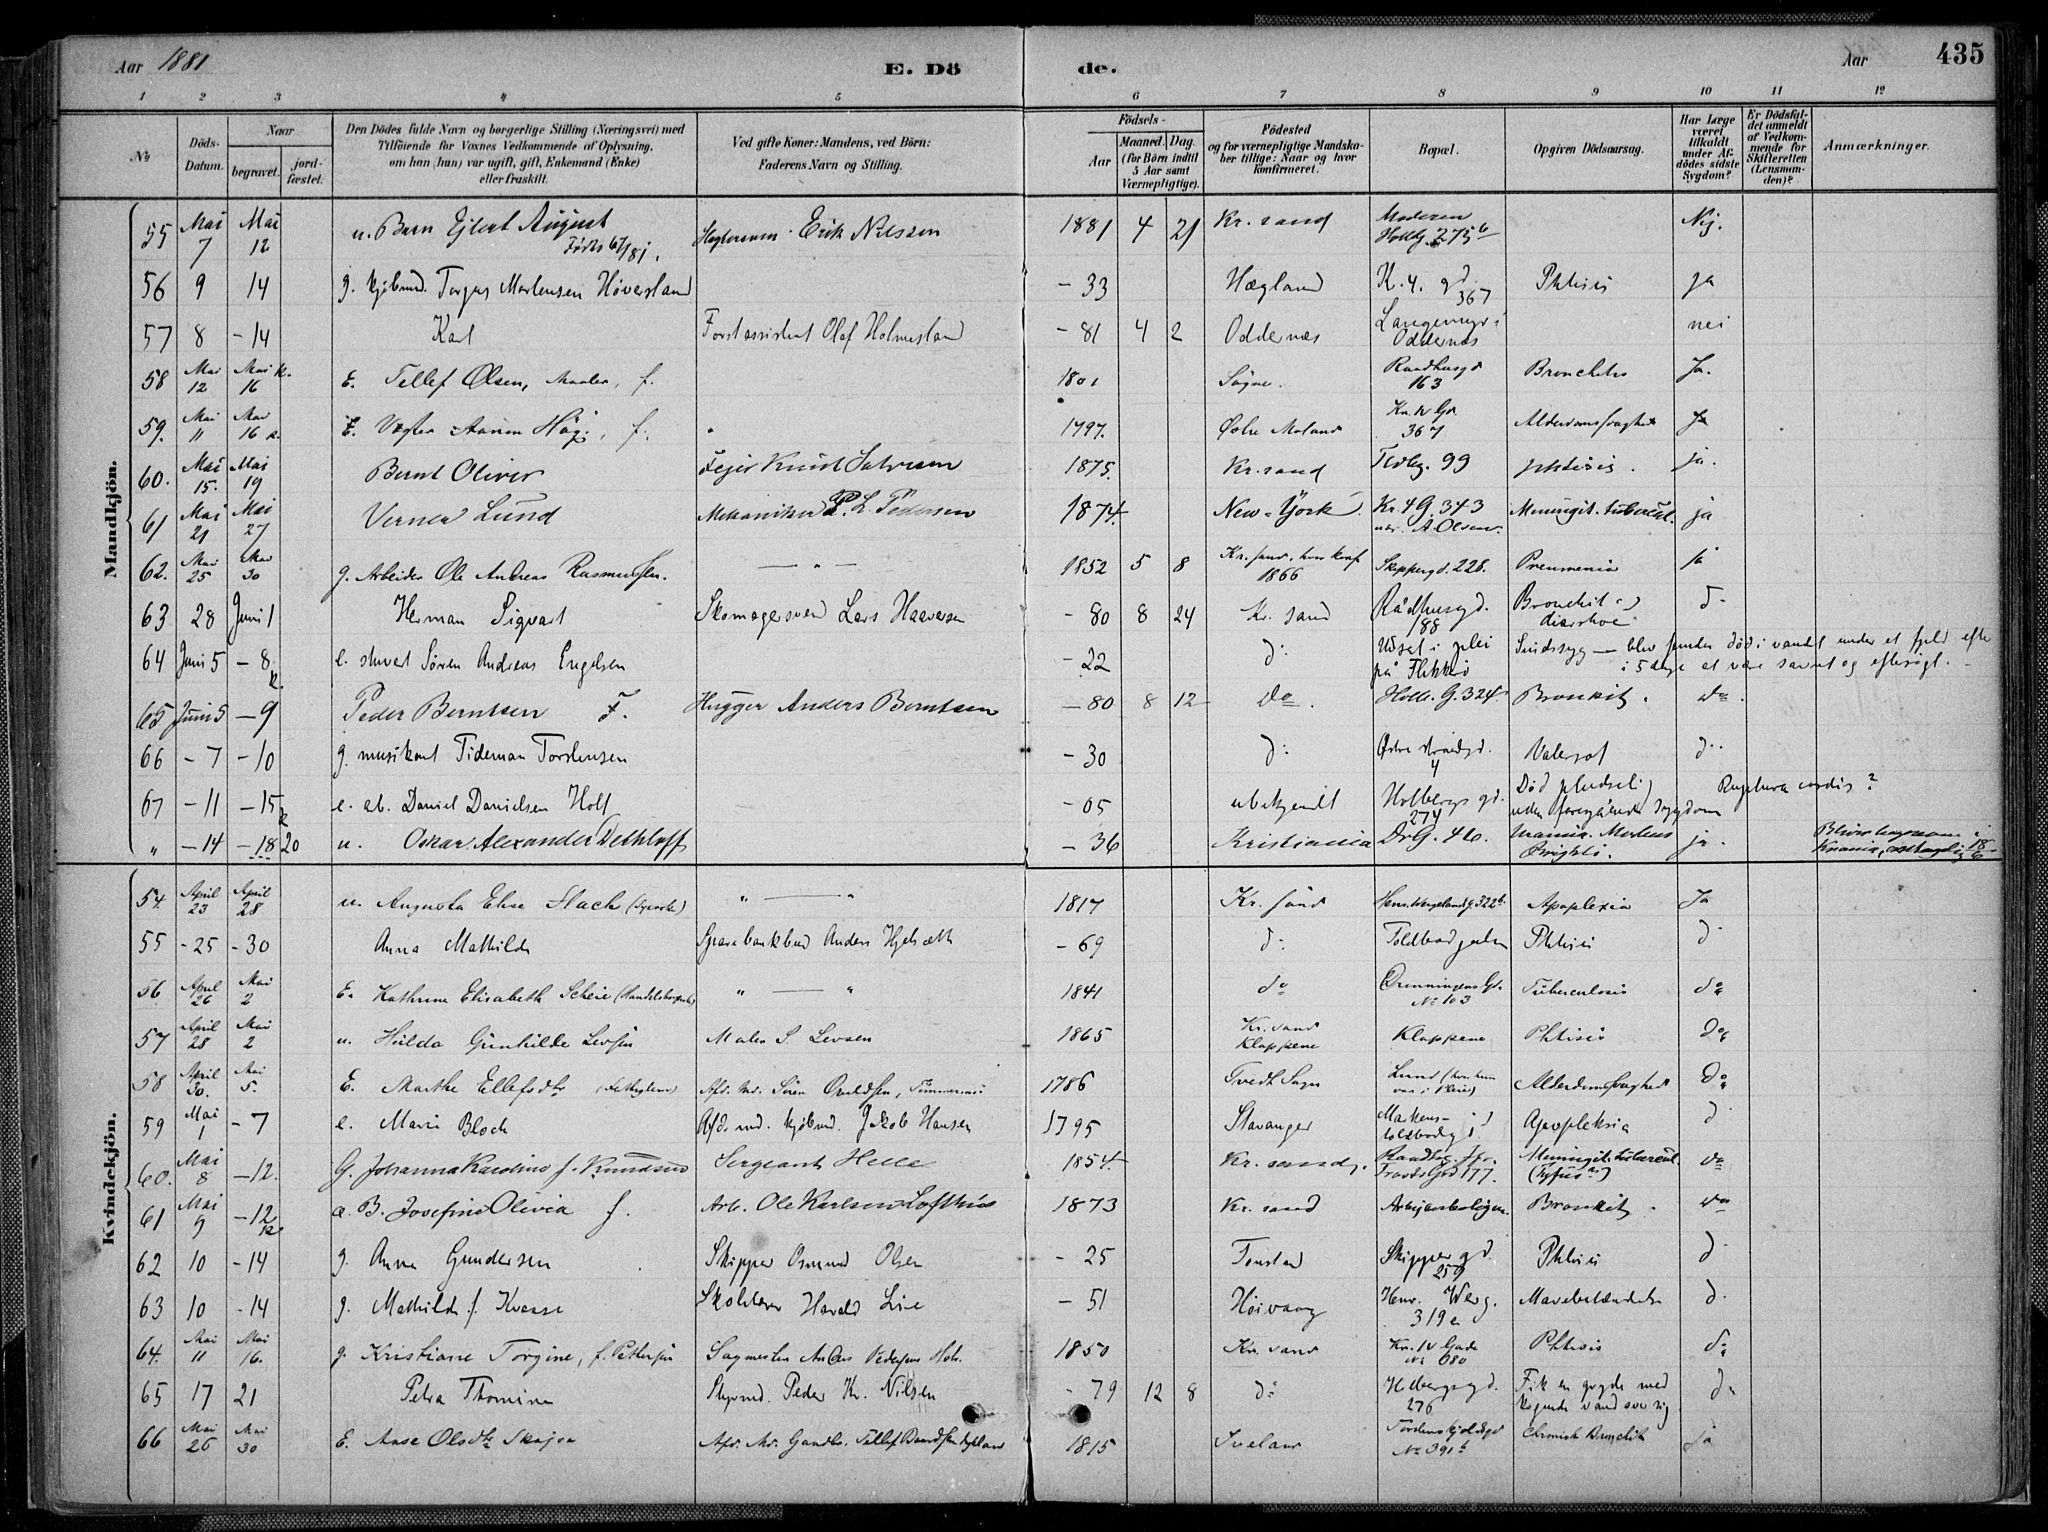 Aar 1881 E. Dö de. Aar 435
1 2 3 4 5 6 7 8 9 10 11 12
No.
Döds-Datum.
Naar
begravet.
jordfæstet.
Den Dödes fulde Navn og borgerlige Stilling (Næringsvei) med
Tilföiende for Voxnes Vedkommende af Oplysning,
om han (hun) var ugift, gift, Enkemand (Enke)
eller fraskilt.
Ved gifte Koner: Mandens, ved Börn:
Faderens Navn og Stilling.
Födsels-
Aar
Maaned.
Dag.
(for Börn indtil
5 Aar samt
Værnepligtige).
Födested
og for værnepligtige Mandskaber
tillige: Naar og hvor
konfirmeret.
Bopæl.
Opgiven Dödsaarsag.
Har Læge
været
tilkaldt
under Afdödes
sidste
Sygdom?
Er Dödsfaldet
anmeldt
af Vedkommende
for
Skifteretten
(Lensmanden)?
Anmærkninger.
Mandkjön.
55 Mai 7 Mai 12 u. Barn Ejlert August Erik Nilssen 1881 4 21 Kr.sand Moderen Holbg. 275b Nej.
56 9 14 g. kjøbmd. Torjus Mortensen Høversland - 33 Hægland K. 4. gd. 367 Phtisis ja
57 8 - 14 Karl Forstassistent Olaf Holmesland - 81 4 2 Oddernæs Langemyr Oddernæs nei
58 Mai 12 Mai 16 k. E. Tellef Olsen, Maaler, f. 1801 Søgne. Raadhusgd 163 Bronchitis Ja.
59. Mai 11 Mai 16 E. Vægter Aanon f. 1797. Østre Moland 367 Alderdomssvaghed Ja
60. Mai 15. Mai 19 Bernt Oliver Fejer Knut 1875. Kr.sand 99 phtisis. ja.
61 Mai 21 Mai 27 Verner Lund Mekaniker P. L. Pedersen 1874. New-York. Kr. 4 G. 343 A. Olsen Meningit. tubercul. ja
62. Mai 25 Mai 30 g. Arbeider Ole Andreas Rasmussen. - " - 1852 5 8 Kr.sand, hvor konf 1866 Skippergd. 228. Pneumonia ja
63 28 Juni 1 Herman Sigvart Skomagersvend Lars Haaversen - 80 8 24 Kr.sand Rådhusgd. 188 Bronchit diarrhoe do
64 Juni 5 - 8 k. e. Søren Andreas Engelsen - 22 do Udsat i plei på Flekkerø Sindssyg - blev funden død i vandet under et fjeld efter
i 5 dage at være savnet og eftersøgt.
65 Juni 5 - 9 Peder Berntsen F. Hugger Anders Berntsen - 80 8 12 do. Holb. G. 324. Bronkit. do.
66 - 7 - 10 g. musikant Tideman Torstensen - 30 do Østre strandgd. 4 Vatersot do
67 - 11 - 15 k e. ab. Daniel Danielsen Holt - 05 ubekjendt Holbergs gd. 274 Død pludselig uden foregående sygdom Ruptura cordis?
" - 14 - 18 20 u. Oskar Alexander Dethloff - 36 Kristiania Dr. G. 46. Uræmia. Morbus Brightii. ja.
Kvindekjön.
54. April 23 April 28 u. Augusta Elise Hack " - " 1817 Kr.sand Henr. Wergelandsg. 322b Apoplexia Ja
55 - 25 - 30 Anna Mathilde Sparebankbud Anders - 69 do Toldbodgaden Phtisis do
56 April 26 Mai 2 E. Kathrine Elisabeth Scheie " - " 1841 do Dronningens Gd. No 103 Tuberculosis do
57 April 28 Mai 2 u. Hulda Gunhilde Levsen Maler S. Levsen 1865 Kr.sand Klappene Klappene Phtisis do
58 April 30. Mai 5. E. Marthe Ellefsdtr Afd. Md. Sören Tømmermd 1786 Tvedt Sogn Lund Alderdomssvaghed do
59 Mai 1 - 7 e. Marie Bloch Afd. md. kjøbmd. Jakob Hansen 1795 Stavanger Markens- toldbodg Apopleksia do
60. Mai 8 - 12. G. Johanna Karoline f. Knudsen Sergeant Helle 1854. Kr.sand. 177. Meningit. tubercul. (Tyfus?) do
61 Mai 9 - 12 k a. B. Josefine Olivia f. Arb. Ole Karlsen Lofthus 1873 Kr.sand Arbejderboligen. Bronkit. do
62 10 - 14 g. Anna Gundersen Skipper Osmund Olsen - 25 Skippergd. 259 Phtisis do
63 10 - 14 g. Mathilde f. Skolelærer Harald Lie - 51 Høivaag Henr. Werg. 319 Mavebetændelse do
64. Mai 11 Mai 16. g. Kristiane Torgine, f. Pettersen Anders 1850 Kr.sand Kr. IV Gade No 680 Phtisis do
65 17 21 Petra Thomine Peder Kr. Nilsen - 79 12 8 do Holbergsgd. 276 Fik en gryde med kogende vand over sig do
66 Mai 26 Mai 30 E. Aase Olsdtr Afd. Md. Gaardbr. Tellef 1815 Iveland Tordenskjoldsgd No 391b Chronisk Bronchit Ja